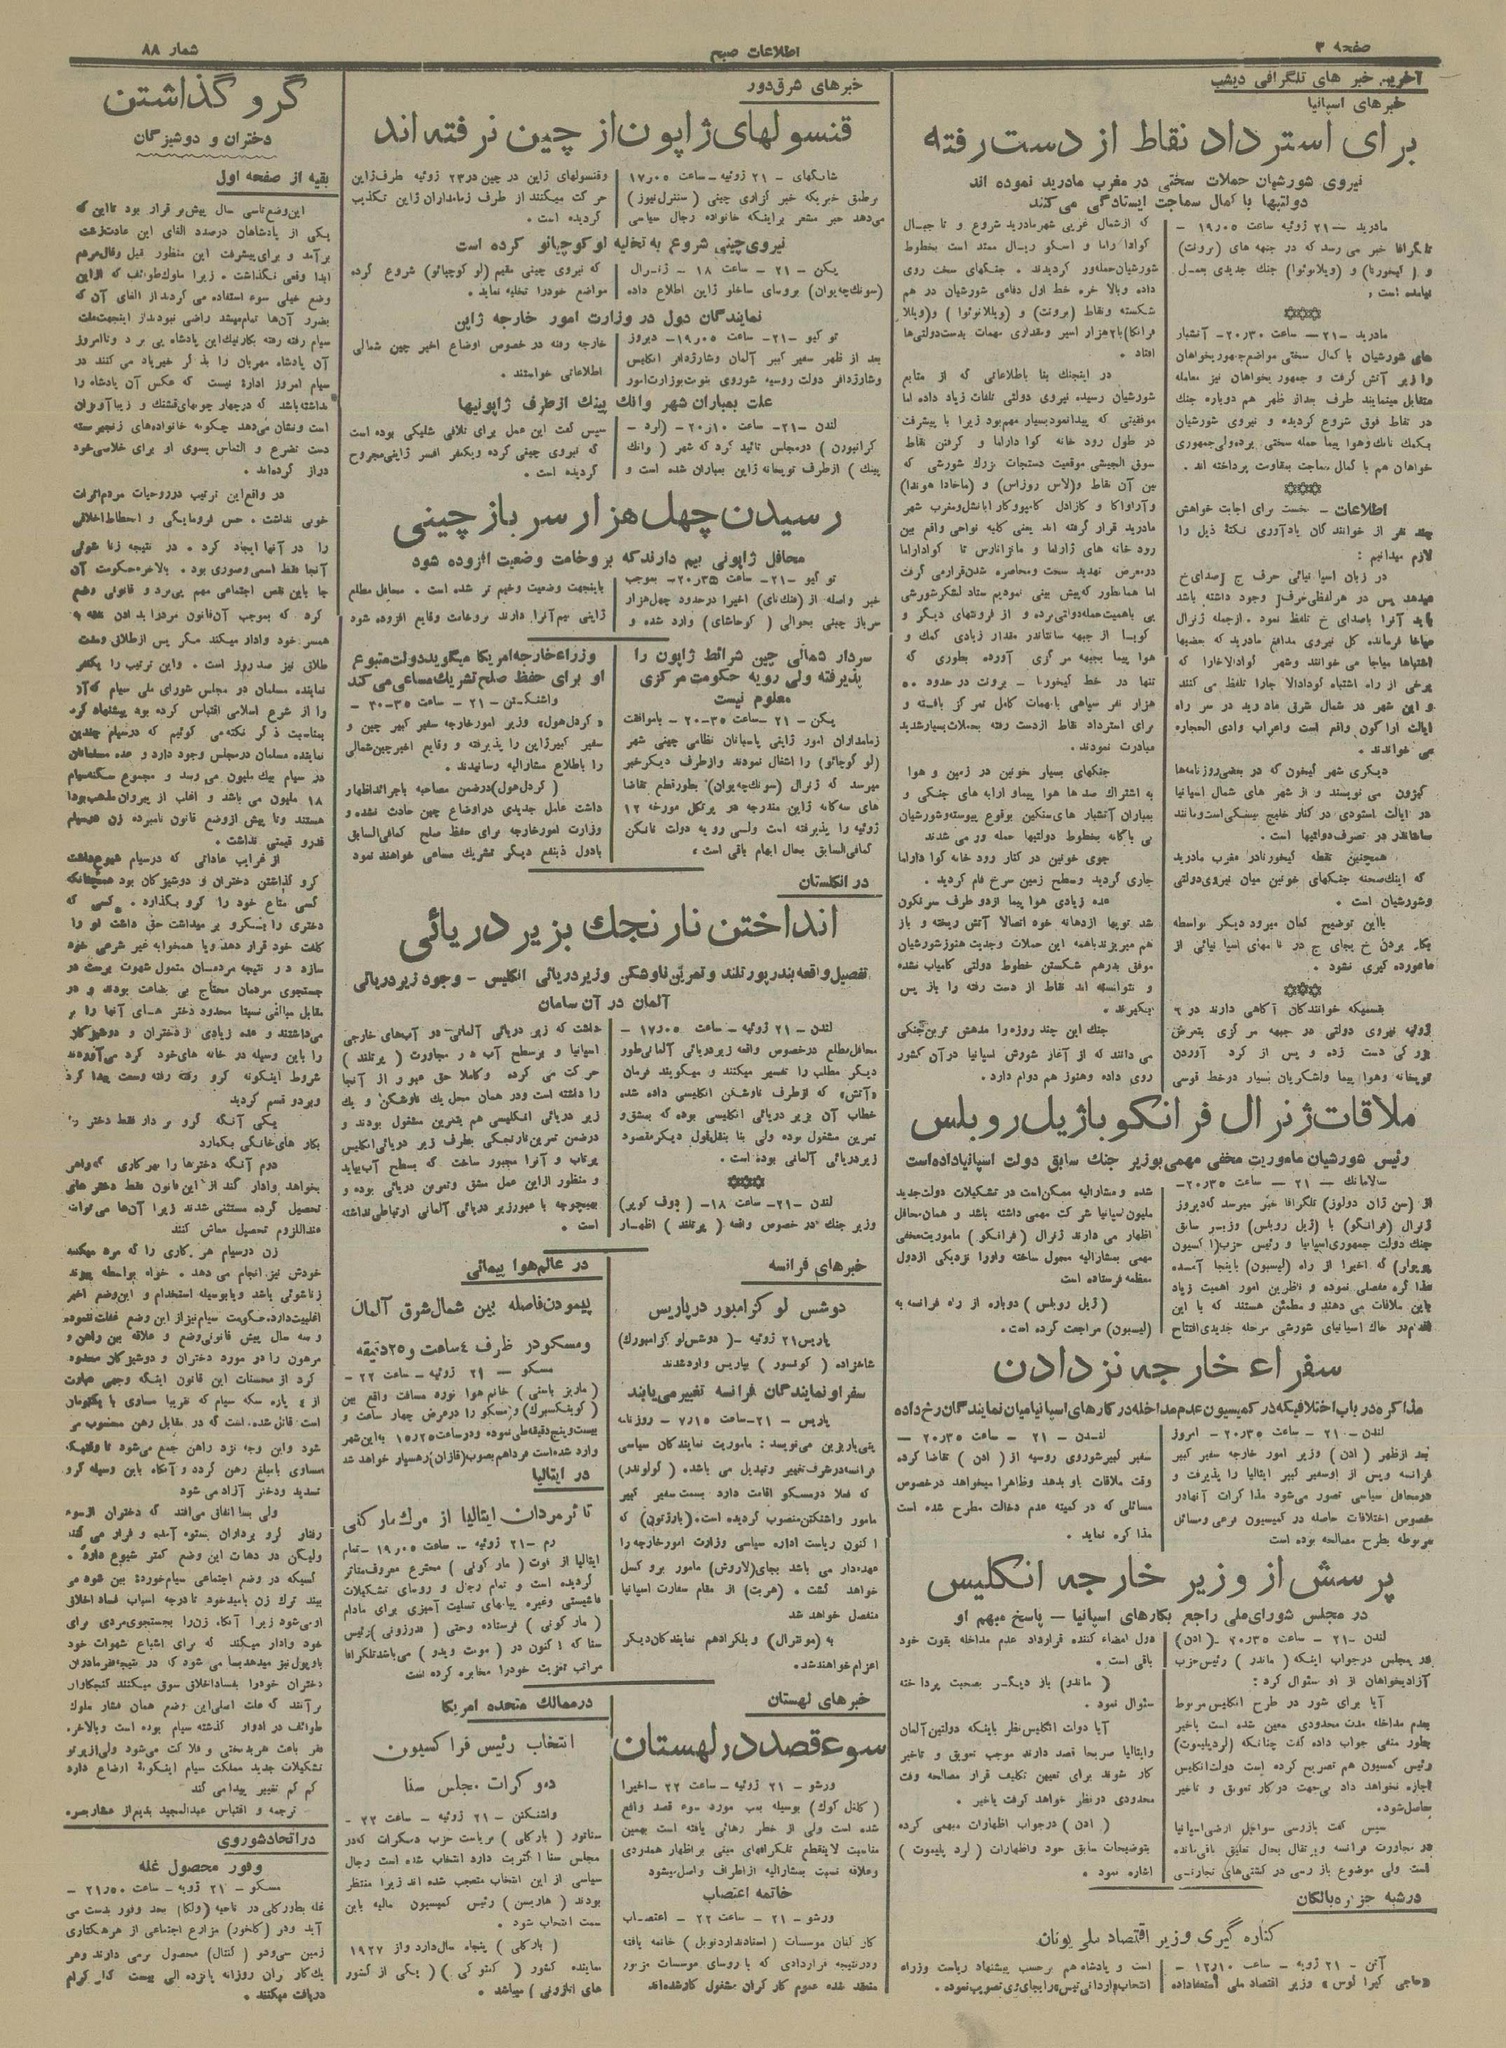 صفحه ۳
اطلاعات صبح
شمار ۸۸
آخرین خبر های تلگرافی دیشب
خبرهای اسپانیا
برای استرداد نقاط از دست رفته
نیروی شورشیان حملات سختی در مغرب مادرید نموده اند
دولتیها با کمال سماجت ایستادگی می‌کنند
مادرید – ۲۱ ژوئیه ساعت ۱۹٫۰۵ –
تلگرافا خبر می رسد که در جنبه های (برونت)
و (کیخورنا) و (ویلانوئوا) جنك جدیدی بعمل
نیامده است.
مادرید –۲۱– ساعت ۲۰٫۳۰– آتشبار
های شورشیان با کمال سختی مواضع جمهوریخواهان
را زیر آتش گرفت و جمهور بخواهان نیز معامله
متقابل مینمایند طرف بعداز ظهر هم دوباره جنك
در نقاط فوق شروع گردیده و نیروی شورشیان
بکمك تانك وهوا پیما حمله سختی برده ولی جمهوری
خواهان هم با کمال سماجت بمقاومت پرداخته اند.
اطلاعات – نخست برای اجابت خواهش
چند نفر از خوانندگان یادآوری نکتهٔ ذیل را
لازم میدانیم :
در زبان اسپا نیائی حرف ج صدای خ
میدهد پس در هر لفظی حرف ج وجود داشته باشد
باید آنرا باصدای خ تلفظ نمود. ازجمله ژنرال
میاخا فرمانده کل نیروی مدافع مادرید که بعضیها
اشتباها میاجا می خوانند وشهر گوادالاخارا که
برخی از راه اشتباه گودادالا جارا تلفظ می کنند
و این شهر در شمال شرق مادرید در سر راه
ایالت اراگون واقع است واعراب وادی الحجاره
می خواندند.
دیگری شهر گیخون که در بعضی روزنامه‌ها
گیژون می نویسند و از شهر های شمال اسپانیا
در ایالت استودی در کنار خلیج بیسکی است ومانند
سانتاندر در تصرف دولتیها است.
همچنین نقطه کیخورنادر مغرب مادرید
که اینك صحنه جنگهای خونین میان نیروی دولتی
وشورشیان است.
بااین توضیح گمان میرود دیگر بواسطه
بکار بردن خ بجای ج در نامهای اسپا نیائی از
ما خورده گیری نشود.
بقسمیکه خوانندگان آگاهی دارند در ۶
ژوئیه نیروی دولتی در جبهه مرکزی بتعرض
بزرگی دست زده و پس از گرد آوردن
توپخانه وهوا پیما ولشکریان بسیار درخط قوسی
که ازشمال غربی شهر مادرید شروع و تا جبال
گوادا راما و اسکو ریال ممتد است بخطوط
شورشیان حمله‌ور گردیدند. جنگهای سخت روی
داده وبالا خره خط اول دفاعی شورشیان در هم
شکسته ونقاط (برونت) و (ویلانوئوا) و (ویلا
فرانکا) با۲ هزار اسیر ومقداری مهمات بدست دولتی‌ها
افتاد.
در اینجنك بنا باطلاعاتی که از منابع
شورشیان رسیده نیروی دولتی تلفات زیاد داده اما
موفقیتی که پیدانمود بسیار مهم بود زیرا با پیشرفت
در طول رود خانه گوا داراما و گرفتن نقاط
سوق الجیشی موقعیت دستجات بزرك شورشی که
بین آن نقاط و(لاس روزاس) و (ماخادا هوندا)
وآراواکا و کازادل کامپوو کارابانشل ومغرب شهر
مادرید قرار گرفته اند یعنی کلیه نواحی واقع بین
رود خانه های ژاراما و مانزانارس تا گواداراما
دو معرض تهدید سخت ومحاصره شدن قرار می گرفت
اما هما‌نطور که پیش بینی نمودیم ستاد لشکر شورشی
بی باهمیت حمله دولتی برده و از فرونتهای دیگر و
گویا از جبهه سانتاندر مقدار زیادی کمك و
هوا پیما بجبهه مرکزی آورده بطوری که
تنها در خط کیخورنا – برونت در حدود ۵۰
هزار نفر سپاهی با مهمات کامل تمرکز یافته و
برای استرداد نقاط ازدست رفته بحملات بسیار شدید
مبادرت نمودند.
جنگهای بسیار خونین در زمین و هوا
به اشتراك صدها هوا پیما و ارابه های جنگی و
بمباران آتشبار های سنگین بوقوع پیوسته وشورشیان
بی باکانه بخطوط دولتیها حمله ور می شدند
جوی خونین در کنار رود خانه گوا داراما
جاری گردید وسطح زمین سرخ فام گردید.
عده زیادی هوا پیما ازدو طرف سرنگون
شد توپها ازدهانه خود اتصالا آتش ریخته و باز
هم میریزند باهمه این حملات وجدیت هنوز شورشیان
موفق بدرهم شکستن خطوط دولتی کامیاب نشده
و نتوانسته اند نقاط از دست رفته را باز پس
بگیرند.
جنك این چند روزه را مدهش ترین جنگی
می دانند که از آغاز شورش اسپانیا در آن کشور
روی داده وهنوز هم دوام دارد.
ملاقات ژنرال فرانکو باژیل روبلس
رئیس شورشیان ماموریت مخفی مهمی بوزیر جنك سابق دولت اسپانیا داده است
سالامانك – ۲۱ – ساعت ۲۰٫۳۵–
از (سن ژان دولوز) تلگرافا خبر میرسد که دیروز
ژنرال (فرانکو) با (ژیل روبلس) وزیر سابق
جنك دولت جمهوری اسپانیا و رئیس حزب (اکسیون
پوپولر) که اخیرا از راه (لیسبون) باینجا آمده
مذاکره مفصلی نموده و ناظرین امور اهمیت زیاد
باین ملاقات می دهند و مطمئن هستند که با این
قدم در خاك اسپانیای شورشی مرحله جدیدی افتتاح
شده و مشارالیه ممکن است در تشکیلات دولت جدید
ملیون اسپانیا شرکت مهمی داشته باشد و همان محافل
اظهار می دارند ژنرال (فرانکو) ماموریت مخفی
مهمی بمشارالیه محول ساخته واورا نزدیکی ازدول
معظمه فرستاده است
(ژیل روبلس) دوباره از راه فرانسه به
(لیسبون) مراجعت کرده است.
سفراء خارجه نزد ادن
مذاکره در باب اختلافیکه در کمیسیون عدم مداخله در کارهای اسپانیا میان نمایندگان رخ داده
لندن –۲۱ – ساعت ۲۰٫۳۵ – امروز
بعد ازظهر (ادن) وزیر امور خارجه سفیر کبیر
فرانسه وپس از اوسفیر کبیر ایتالیا را پذیرفت و
در محافل سیاسی تصور می‌شود مذاکرات آنها در
خصوص اختلافات حاصله در کمیسیون فرعی ومسائل
مربوطه بطرح مصالحه بوده است
لندن – ۲۱ – ساعت ۲۰٫۳۵ –
سفیر کبیر شوروی روسیه از (ادن) تقاضا کرده
وقت ملاقات باو بدهد وظاهرا میخواهد درخصوص
مسائلی که در کمیته عدم دخالت مطرح شده است
مذاکره نماید.
پرسش از وزیر خارجه انگلیس
در مجلس شورای ملی راجع بکارهای اسپانیا – پاسخ مبهم او
لندن –۲۱ – ساعت ۲۰٫۳۵ –(ادن)
در مجلس درجواب اینکه (ماندر) رئیس حزب
آزادیخواهان از او سئوال کرد:
آیا برای شور در طرح انگلیس مربوط
بعدم مداخله مدت محدودی معین شده است یاخیر
بطور منفی جواب داده گفت چنانکه (لرد پلیموت)
رئیس کمسیون هم تصریح کرده است دولت انگلیس
اجازه نخواهد داد بی جهت در کار تعویق و تاخیر
حاصل شود.
سپس گفت بازرسی سواحل ارضی اسپانیا
در مجاورت فرانسه و پرتقال بحال تعلیق باقی مانده
است ولی موضوع باز رسی در کشتی‌های تجارتی
دول امضاء کننده قرارداد عدم مداخله بقوت خود
باقی است.
(ماندر) باز دیگر بصحبت پرداخته
سئوال نمود.
آیا دولت انگلیس نظر باینکه دولتین آلمان
وایتالیا صریحا قصد دارند موجب تعویق و تاخیر
کار شوند برای تعیین تکلیف قرار مصالحه وقت
محدودی درنظر خواهد گرفت یاخیر.
(ادن) درجواب اظهارات مبهمی کرده
بتوضیحات سابق خود واظهارات (لرد پلیموت)
اشاره نمود.
در شبه جزیره بالکان
کناره گیری وزیر اقتصاد ملی یونان
آتن – ۲۱ ژویه – ساعت ۱۲٫۱۰ –
«حاجی کیرا لوس» وزیر اقتصاد ملی استعفا داده
است و پادشاه هم برحسب پیشنهاد ریاست وزراء
انتخاب «اردانی تیس» را بجای وی تصویب نموده.
خبرهای شرق دور
قنسولهای ژاپون از چین نرفته اند
شانگهای – ۲۱ ژوئیه – ساعت ۱۷٫۰۵
برطبق خبریکه خبر گزاری چینی (سنترل نیوز)
می‌دهد خبر مشعر براینکه خانواده رجال سیاسی
وقنسولهای ژاپن در چین در۲۳ ژوئیه طرف ژاپن
حرکت میکنند از طرف زمامداران ژاپن تکذیب
گردیده است.
نیروی چینی شروع به تخلیه لوکوچیائو کرده است
پکن – ۲۱ – ساعت ۱۸ – ژنرال
(سونك چه یوان) بروسای ساخلو ژاپن اطلاع داده
که نیروی چینی مقیم (لو کوچیائو) شروع کرده
مواضع خودرا تخلیه نماید.
نمایندگان دول در وزارت امور خارجه ژاپن
تو کیو –۲۱– ساعت ۱۹٫۰۵– دیروز
بعد از ظهر سفیر کبیر آلمان وشارژدافر انگلیس
وشارژدافر دولت روسیه شوروی بنوبت بوزارت امور
خارجه رفته در خصوص اوضاع اخیر چین شمالی
اطلاعاتی خواستند.
علت بمباران شهر وانك پینك ازطرف ژاپونیها
لندن –۲۱– ساعت ۲۰٫۱۰– (لرد –
کرانبورن) درمجلس تائید کرد که شهر (وانك
پینك) ازطرف توپخانه ژاپن بمباران شده است و
سپس گفت این عمل برای تلافی شلیکی بوده است
که نیروی چینی کرده ویکنفر افسر ژاپنی مجروح
گردیده است.
رسیدن چهل هزار سرباز چینی
محافل ژاپونی بیم دارند که بر وخامت وضعیت افزوده شود
تو کیو –۲۱– ساعت ۲۰٫۳۵– بموجب
خبر واصله از (فنك‌تای) اخیرا درحدود چهل هزار
سرباز چینی بحوالی (کوحاشای) وارد شده و
باینجهت وضعیت وخیم تر شده است. محافل مطلع
ژاپنی بیم آنرا دارند بروخامت وقایع افزوده شود
سردار شمالی چین شرائط ژاپون را
پذیرفته ولی رویه حکومت مرکزی
معلوم نیست
پکن – ۲۱ – ساعت ۲۰-۳۵ – باموافقت
زمامداران امور ژاپنی پاسبانان نظامی چینی شهر
(لو کوچیائو) را اشغال نمودند وازطرف دیگر خبر
میرسد که ژنرال (سونك چه‌یوان) بطور قطع تقاضا
های سه‌گانه ژاپن مندرجه در پرتکل مورخه ۱۲
ژوئیه را پذیرفته است ولی رویه دولت نانکن
کمافی‌السابق بحال ابهام باقی است.
وزراء خارجه امریکا میگوید دولت متبوع
او برای حفظ صلح تشریك مساعی می‌کند
واشنگتن – ۲۱ – ساعت ۲۰-۳۵ –
«کردل هول» وزیر امور خارجه سفیر کبیر چین و
سفیر کبیر ژاپن را پذیرفته و وقایع اخیر چین شمالی
را باطلاع مشارالیه رسانیدند.
(کردل هول) درضمن مصاحبه باجرائد اظهار
داشت عامل جدیدی در اوضاع چین حادث نشده و
وزارت امور خارجه برای حفظ صلح کمافی‌السابق
بادول ذینفع دیگر تشریك مساعی خواهند نمود
در انگلستان
انداختن نارنجك بزیر دریائی
تفصیل واقعه بندر پورتلند وتمرین ناوشکن وزیر دریائی انگلیس – وجود زیر دریائی
آلمان در آن سامان
لندن – ۲۱ ژوئیه – ساعت ۱۷٫۰۵ –
محافل مطلع درخصوص واقعه زیر دریائی آلمانی طور
دیگر مطلب را تفسیر میکنند و میگویند فرمان
«آتش» که ازطرف ناوشکن انگلیسی داده شده
خطاب آن بزیر دریائی انگلیسی بوده که بمشق و
تمرین مشغول بوده ولی بنا بنقل قول دیگر مقصود
زیر دریائی آلمانی بوده است.
لندن –۲۱– ساعت ۱۸– (دوف کوپر)
وزیر جنك در خصوص واقعه (پرتلند) اظهار
داشت که زیر دریائی آلمانی در آب‌های خارجی
اسپانیا و برسطح آب در مجاورت (پرتلند)
حرکت می کرده وکاملا حق عبور از آنجا
را داشته است ودر همان محل یك ناوشکن و یك
زیر دریائی انگلیسی هم بتمرین مشغول بودند و
درضمن تمرین نارنجکی بطرف زیر دریائی انگلیس
پرتاب و آنرا مجبور ساخت که بسطح آب بیاید
و منظور ازاین عمل مشق وتمرین دریائی بوده و
بهیچوجه با عبور زیر دریائی آلمانی ارتباطی نداشته
است.
خبرهای فرانسه
دوشس لو کرامبور در پاریس
پاریس ۲۱ ژوئیه –(دوشس لو کزامبورك)
شاهزاده (کونسور) بپاریس وارد شدند
سفرا و نمایندگان فرانسه تغییر می‌یابند
پاریس – ۲۱– ساعت ۷/۱۵ – روزنامه
پتی پاریزین می‌نویسد: ماموریت نمایندگان سیاسی
فرانسه درشرف تغییر وتبدیل می باشد. (کولوندر)
که فعلا درمسکو اقامت دارد بسمت سفیر کبیر
مامور واشنگتن منصوب گردیده است. (بارژتون) که
اکنون ریاست اداره سیاسی وزارت امور خارجه را
عهده‌دار می باشد بجای (لاروش) مامور بروکسل
خواهد گشت. (هربت) از مقام سفارت اسپانیا
منفصل خواهد شد
به (مونترال) و بلگراد هم نمایندگان دیگر
اعزام خواهند شد.
خبرهای لهستان
سوء قصد در لهستان
ورشو – ۲۱ ژوئیه – ساعت ۲۲ – اخیرا
(کلنل کوك) بوسیله بمب مورد سوء قصد واقع
شده است ولی از خطر رهائی یافته است بهمین
مناسبت لاینقطع تلگرافهای مبنی براظهار همدردی
وعلاقه نسبت بمشارالیه ازاطراف واصل میشود
خاتمه اعتصاب
ورشو – ۲۱ – ساعت ۲۲ – اعتصاب
کارکنان موسسات (استاندارد نوبل) خاتمه یافته
ودر نتیجه قراردادی که با روسای موسسات مزبور
منعقد شده عموم کارگران مشغول کار شده اند
در عالم هوا پیمائی
پیمودن فاصله بین شمال شرق آلمان
ومسکو در ظرف ۴ ساعت و ۲۵ دقیقه
مسکو – ۲۱ ژوئیه – ساعت ۲۲ –
(ماریز باستی) خانم هوا نورد مسافت واقع بین
(کونیکسبرك) ومسکو را درعرض چهار ساعت و
بیست وپنج دقیقه طی نموده ودر ساعت ۱۵٫۲۵ به این شهر
وارد شده است فرداهم بصوب (قازان) رهسپار خواهد شد
در ایتالیا
تاثر مردان ایتالیا از مرك مارکنی
رم – ۲۱ ژوئیه – ساعت ۱۹٫۰۵ – تمام
ایتالیا از فوت (مار کونی) مخترع معروف متاثر
گردیده است و تمام رجال و روسای تشکیلات
فاشیستی وغیره پیامهای تسلیت آمیزی برای مادام
(مار کونی) فرستاده وحتی (فدرزونی) رئیس
سنا که اکنون در (مونت ویدر) می‌باشد تلگرافا
مراتب تعزیت خودرا مخابره کرده است
در ممالك متحده امریکا
انتخاب رئیس فراکسیون
دموکرات مجلس سنا
واشنگتن – ۲۱ ژوئیه – ساعت ۲۲ –
سناتور (بارکلی) بریاست حزب دمکرات که در
مجلس سنا اکثریت دارد انتخاب شده است رجال
سیاسی از این انتخاب متعجب شده اند زیرا منتظر
بودند (هاریسن) رئیس کمیسیون مالیه باین
سمت انتخاب شود.
(بارکلی) پنجاه سال دارد واز ۱۹۲۷
نماینده کشور (کنتوکی) (یکی از کشور
های اتازونی) میباشد.
گرو گذاشتن
دختران و دوشیزگان
بقیه از صفحه اول
این وضع تاسی سال پیش برقرار بود تااین که
یکی از پادشاهان درصدد الغای این عادت زشت
برآمد و برای پیشرفت این منظور قیل وقال مردم
ابدا وقعی نگذاشت. زیرا ملوك طوائف که ازاین
وضع خیلی سوء استفاده می کردند از الغای آن که
بضرر آن‌ها تمام میشد راضی نبودند از اینجهت ملت
سیام رفته رفته بکار نیك این پادشاه پی برد وتاامروز
آن پادشاه مهربان را بذکر خیر یاد می کنند در
سیام امروز ادارهٔ نیست که عکس آن پادشاه را
نداشته باشد که در چهار چوبهای قشنك و زیبا آویزان
است ونشان می‌دهد چگونه خانواده‌های زنجیر بسته
دست تضرع و التماس بسوی او برای خلاصی خود
دراز کرده‌اند.
در واقع این ترتیب در روحیات مردم اثرات
خوبی نداشت. حس فرومایگی و انحطاط اخلاقی
را در آنها ایجاد کرد. در نتیجه زنا شوئی
آنجا فقط اسمی وصوری بود. بالاخره حکومت آن
جا باین نقص اجتماعی مهم پی برد و قانونی وضع
کرد که بموجب آن قانون مردرا بدادن نفقه به
همسر خود وادار میکند مگر پس ازطلاق ومدت
طلاق نیز صد روز است. واین ترتیب را یکنفر
نماینده مسلمان در مجلس شورای ملی سیام که آن
را از شرع اسلامی اقتباس کرده بود پیشنهاد کرد
بمناسبت ذکر نکته می گوئیم که درسیام چندین
نماینده مسلمان درمجلس وجود دارد و عده مسلمانان
در سیام بیك ملیون می رسد و مجموع سکنه سیام
۱۸ ملیون می باشد و اغلب از پیروان مذهب بودا
هستند وتا پیش ازوضع قانون نامبرده زن در سیام
قدرو قیمتی نداشت.
از غرایب عاداتی که در سیام شیوع داشت
گرو گذاشتن دختران و دوشیزگان بود همچنانکه
کسی متاع خود را گرو بگذارد. کسی که
دختری را بگرو بر میداشت حق داشت او را
کلفت خود قرار دهد ویا همخوابه غیر شرعی خود
سازد در نتیجه مردمان متمول شهوت پرست در
جستجوی مردمان محتاج بی بضاعت بودند و در
مقابل مبالغی نسبتا محدود دختر های آنها را بر
می‌داشتند و عده زیادی از دختران و دوشیزگان
را باین وسیله در خانه های خود گرد می‌آوردند
شروط اینگونه گرو رفته رفته وسعت پیدا کرد
وبردو قسم گردید
یکی آنکه گرو بردار فقط دختر را
بکار های خانگی بگمارد
دوم آنکه دخترها را بهر کاری که دلش
بخواهد وادار کند از این قانون فقط دختر های
تحصیل کرده مستثنی شدند زیرا آن‌ها می‌توانند
عنداللزوم تحصیل معاش کنند
زن درسیام هر کاری را که مرد میکند
خودش نیز انجام می دهد. خواه بواسطه پیوند
زناشوئی باشد ویا بوسیله استخدام و این وضع اخیر
اغلبیت دارد. حکومت سیام نیز از این وضع غفلت ننموده
و سه سال پیش قانونی وضع و علاقه بین راهن و
مرهون را در مورد دختران و دوشیزگان محدود
کرد از محسنات این قانون اینکه وجهی عبارت
از ۴ پاره سکه سیام که تقریبا مساوی با یکتومان
است قائل شده. است که در مقابل رهن محسوب می
شود واین وجه نزد راهن جمع می‌شود تا وقتیکه
مساوی بامبلغ رهن گردد و آنگاه باین وسیله گرو
تسدید ودختر آزاد می شود
ولی بسا اتفاق می‌افتد که دختران ازسوء
رفتار گرو برداران بستوه آمده و فرار می کنند
ولیکن در دهات این وضع کمتر شیوع دارد.
کسیکه در وضع اجتماعی سیام خورده بین شود می
بیند ترك زن بامید خود تا درجه اسباب فساد اخلاقی
او می‌شود زیرا آنگاه. زن را بجستجوی مردی برای
خود وادار میکند که برای اشباع شهوات خود
باو پول نیز میدهد بسا می شود که در نتیجه فقر مادران
دختران خودرا بفساد اخلاق سوق میکنند کنجکاوان
برآنند که علت اصلی این وضع همان فشار ملوك
طوائف در ادوار گذشته سیام بوده است وبالاخره
فقر باعث هر بدبختی و فلاکت می‌شود ولی از پرتو
تشکیلات جدید مملکت سیام اینگونه اوضاع دارد
کم کم تغییر پیدا می کند
ترجمه و اقتباس عبدالمجید بدیع از مصر
در اتحاد شوروی
وفور محصول غله
مسکو – ۲۱ ژویه – ساعت ۲۱٫۵۰ –
غله بطور کلی در ناحیه (ولگا) بحد وفور بدست می
آید ودر (کلخوز) مزارع اجتماعی از هر هکتاری
زمین سی ودو (کنتال) محصول برمی دارند وهر
یك کار گران روزانه پانزده الی بیست کیلو گرام
دریافت میکنند.